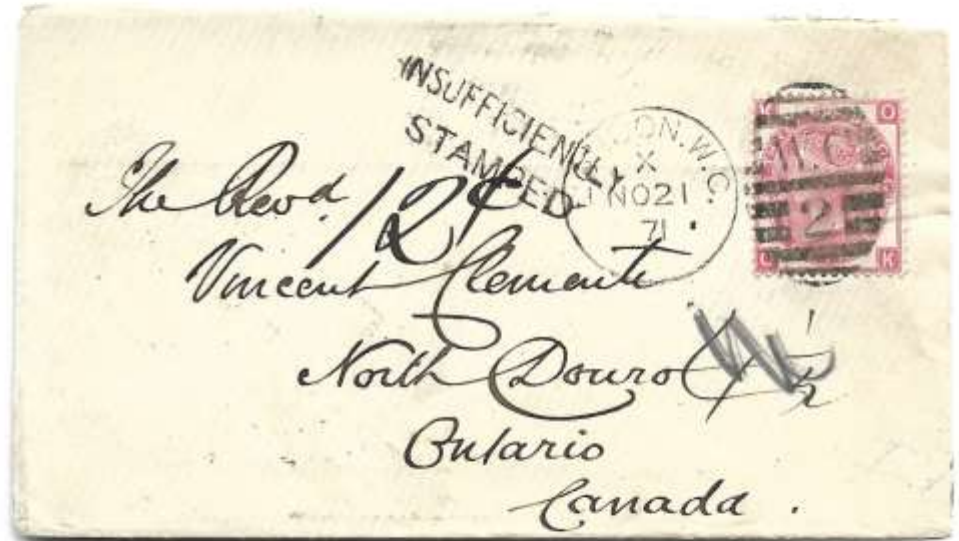 INSUFFICIENTLY
STAMPED
LONDON.W.C.
X
NO21
71
W.C
2
K O
O K
The Revd.
12¢
Vincent Clementi
North Douro
Ontario
Canada.